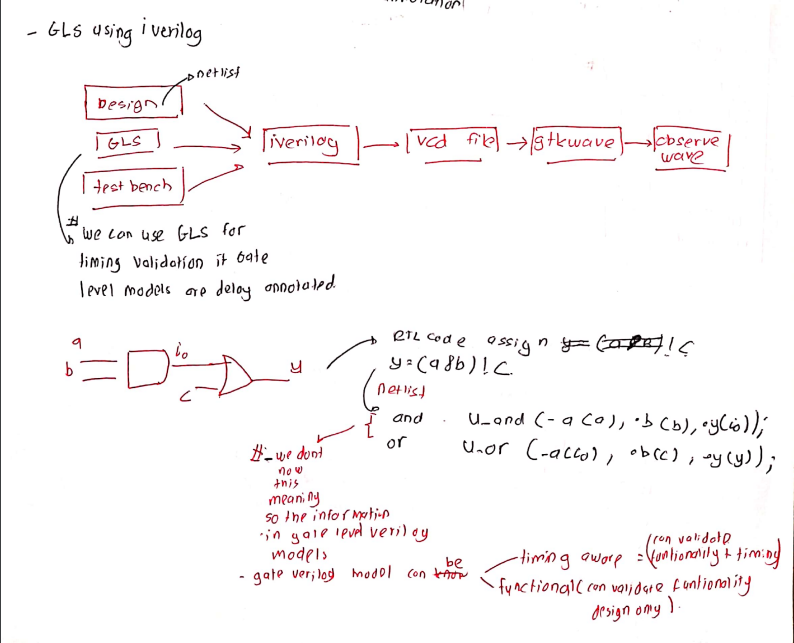 - GLS using iverilog
netlist
Design
GLS
test bench
iverilog
vcd file
gtkwave
observe
wave
# we can use GLS for
timing validation if gate
level models are delay annotated.
a
b
i0
c
y
RTL code assign y= !c
y=(a&b)!c
netlist
{ and u_and (-a(a), .b(b), .y(i0));
or u_or (-a(i0), .b(c), .y(y));
#_ we dont
now
this
meaning
so the information
in gate level verilog
models
- gate verilog model can be
timing aware = (can validate
funtionality + timing)
functional (can validate funtionality
design omy).